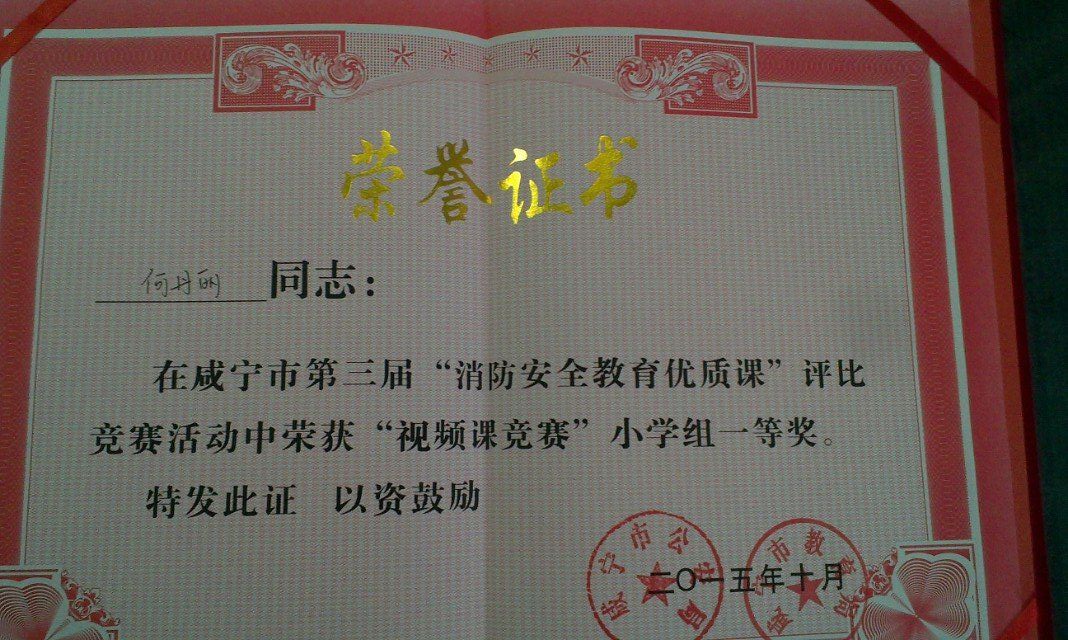 荣誉证书
何丹丽 同志：
在咸宁市第三届“消防安全教育优质课”评比
竞赛活动中荣获“视频课竞赛”小学组一等奖。
特发此证 以资鼓励
咸宁市公安局
咸宁市教育局
二〇一五年十月